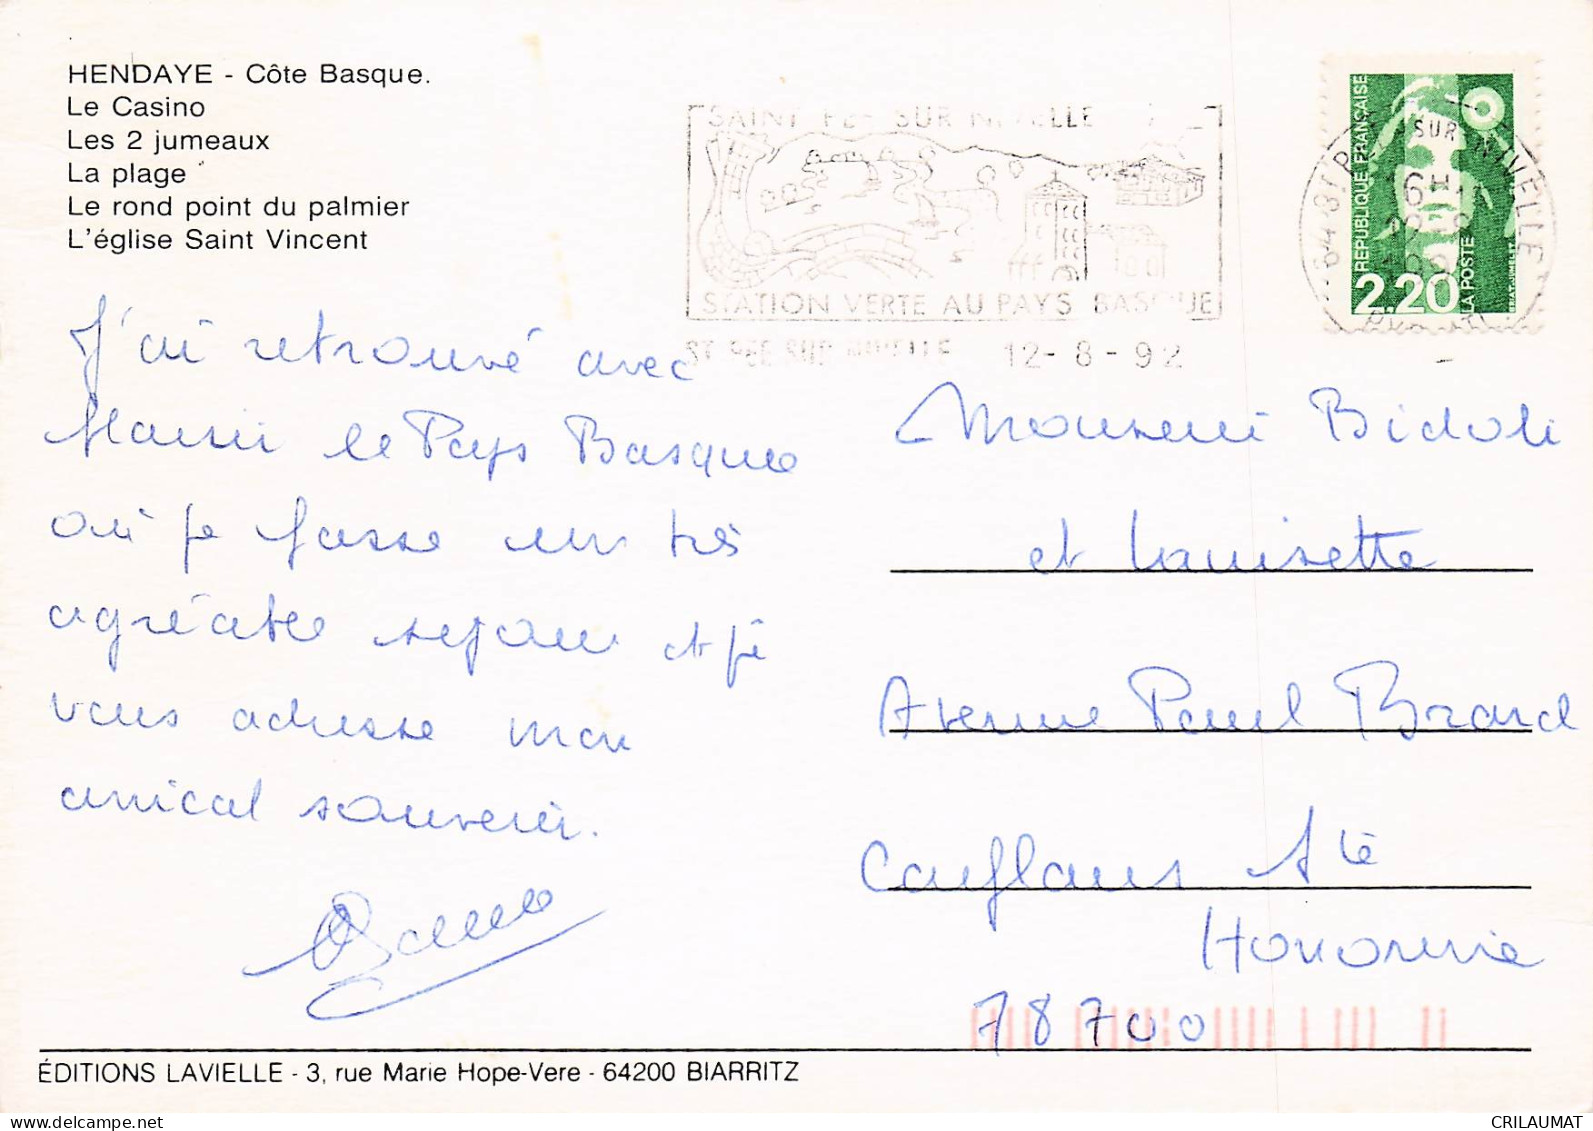 HENDAYE - Côte Basque.
Le Casino
Les 2 jumeaux
La plage
Le rond point du palmier
L'église Saint Vincent
SAINT PEE SUR NIVELLE
STATION VERTE AU PAYS BASQUE
ST PEE SUR NIVELLE 12-8-92
REPUBLIQUE FRANÇAISE
2,20
LA POSTE
SUR NIVELLE
16H
J'ai retrouvé avec
plaisir le Pays Basque
où je passe un très
agréable sejour et je
vous adresse mon
amical souvenir.
Monsieur Bidoli
et Louisette
Avenue Paul Brard
Conflans Ste
Honorine
78700
ÉDITIONS LAVIELLE - 3, rue Marie Hope-Vere - 64200 BIARRITZ
CRILAUMAT